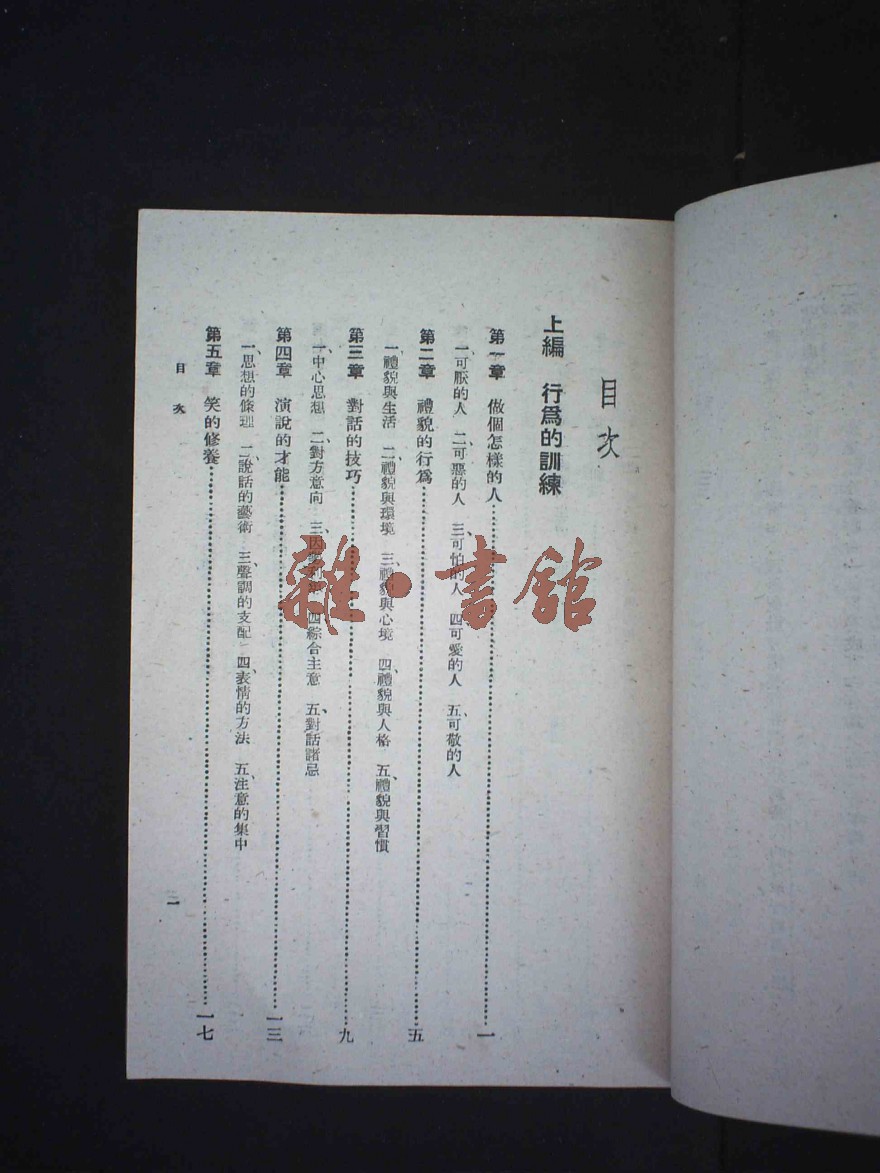 目次
上編 行爲的訓練
第一章 做個怎樣的人……一
一、可厭的人 二、可惡的人 三、可怕的人 四、可愛的人 五、可敬的人
第二章 禮貌的行爲……五
一、禮貌與生活 二、禮貌與環境 三、禮貌與心境 四、禮貌與人格 五、禮貌與習慣
第三章 對話的技巧……九
一、中心思想 二、對方意向 三、因勢利導 四、綜合主意 五、對話諸忌
第四章 演說的才能……一三
一、思想的條理 二、說話的藝術 三、聲調的支配 四、表情的方法 五、注意的集中
第五章 笑的修養……一七
目次
一
雜·書館